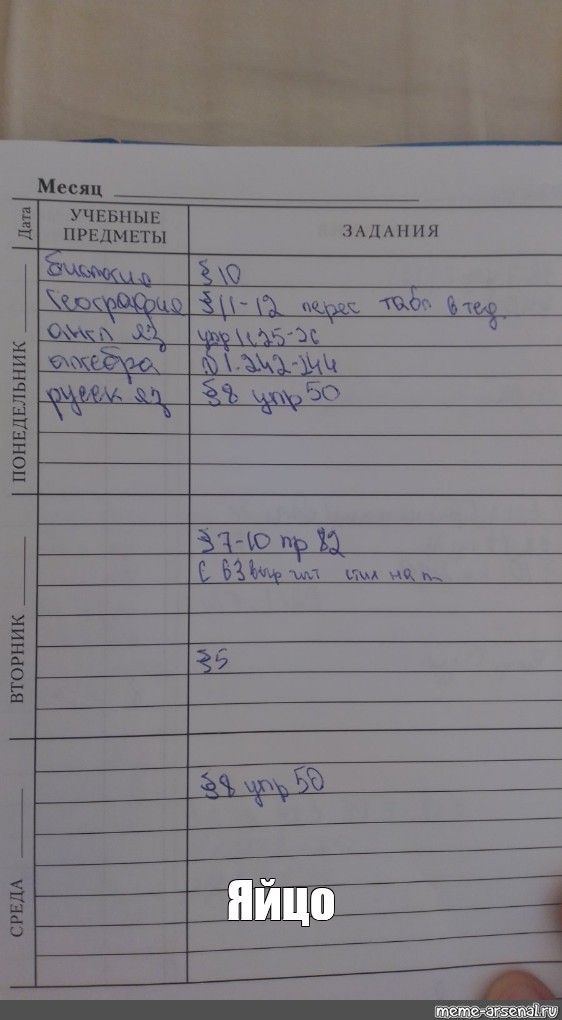 Месяц
Дата УЧЕБНЫЕ ПРЕДМЕТЫ ЗАДАНИЯ
ПОНЕДЕЛЬНИК
биология §10
география §11-12 перес табл в тед.
англ яз упр 1 с 25-26
алгебра 1.242-244
русск яз §8 упр 50
ВТОРНИК
§7-10 пр 82
С 63 выр чит стих на
§5
СРЕДА
§8 упр 50
Яйцо
meme-arsenal.ru